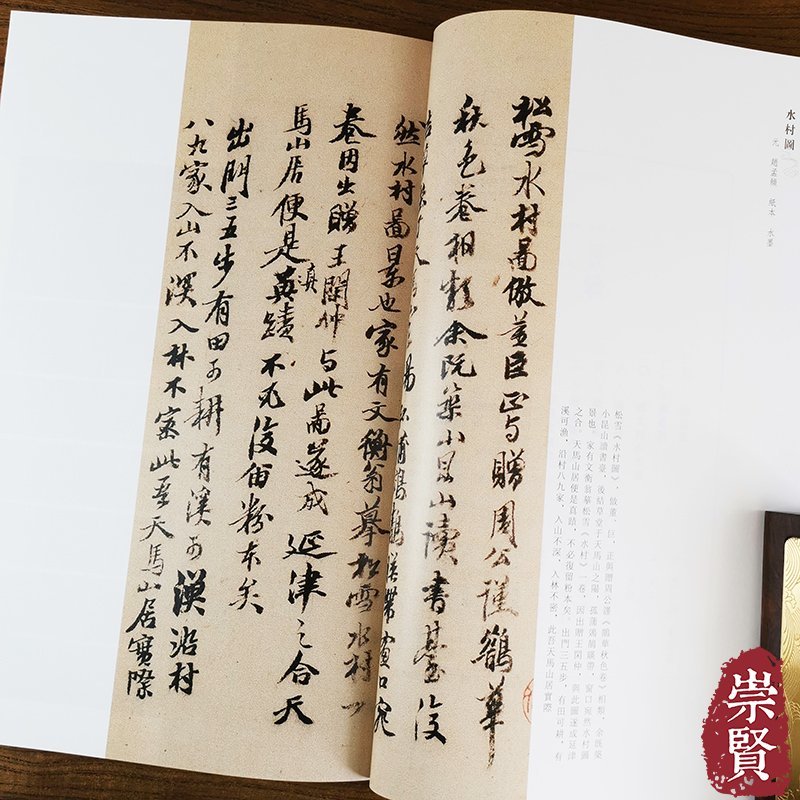 水村圖
元 趙孟頫 紙本 水墨
松雪水村啚倣董臣正与贈周公謹鵲華
秋色卷相類余既築小昆山讀書臺後
然水村啚景也家有文衡翁摹松雪水村一
卷因出贈王閑仲与此啚遂成延津之合天
真
馬山居便是真蹟不必復留粉本矣
出門三五步有田可耕有溪可漁沿村
八九家入山不深入林不密此吾天馬山居實際
松雪《水村圖》，倣董、巨，正與贈周公謹《鵲華秋色卷》相類，余既築
小昆山讀書臺，後結草堂于天馬山之陽，孤蒲鵁鶄映帶，窗口宛然水村圖
景也。家有文衡翁摹松雪《水村》一卷，因出贈王閑仲，與此圖遂成延津
之合。天馬山居便是真蹟，不必復留粉本矣。出門三五步，有田可耕，有
溪可漁，沿村八九家，入山不深，入林不密，此吾天馬山居實際
崇賢